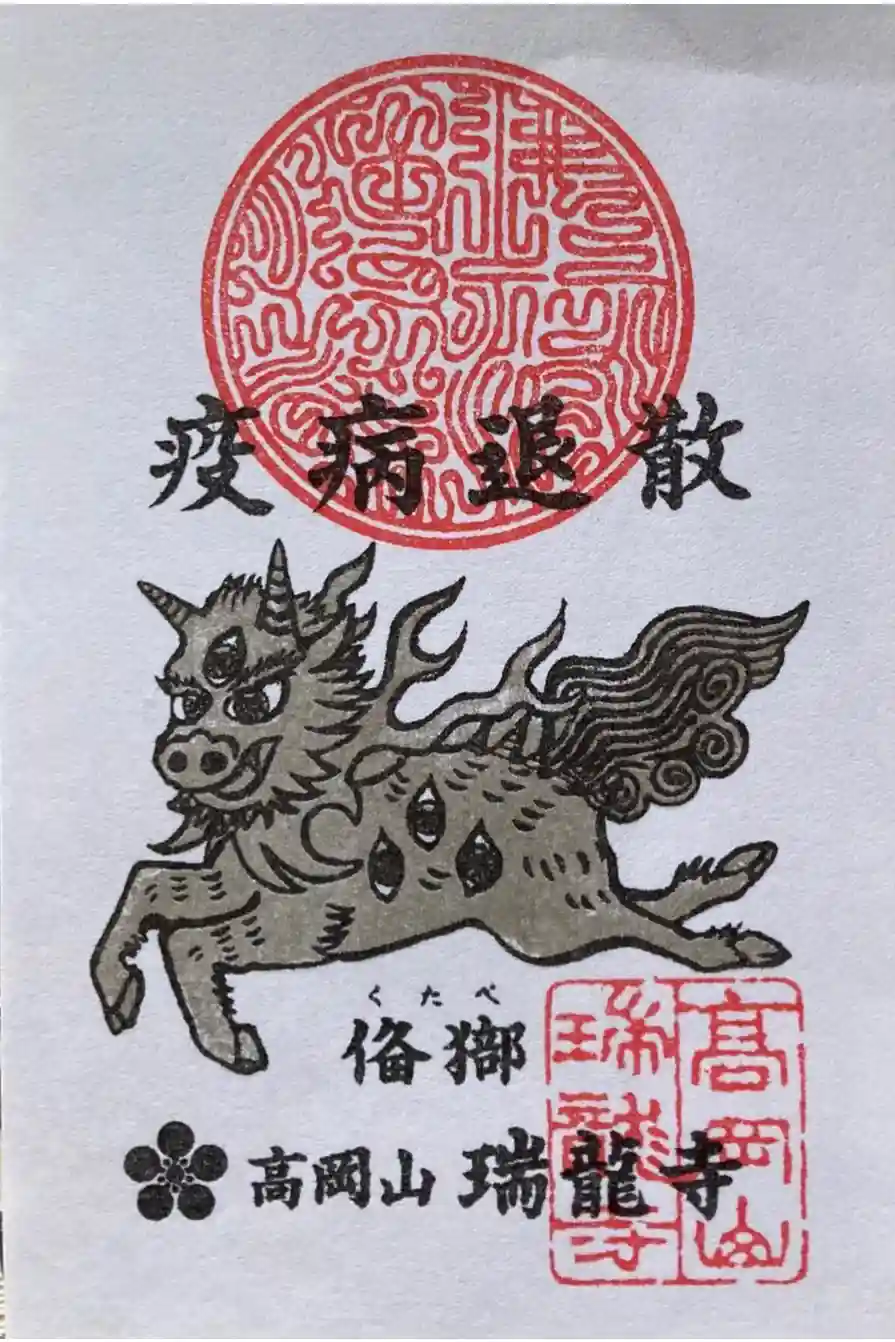 疫病退散
くたべ
俻𤡔
高岡山 瑞龍寺
高岡山
瑞龍寺